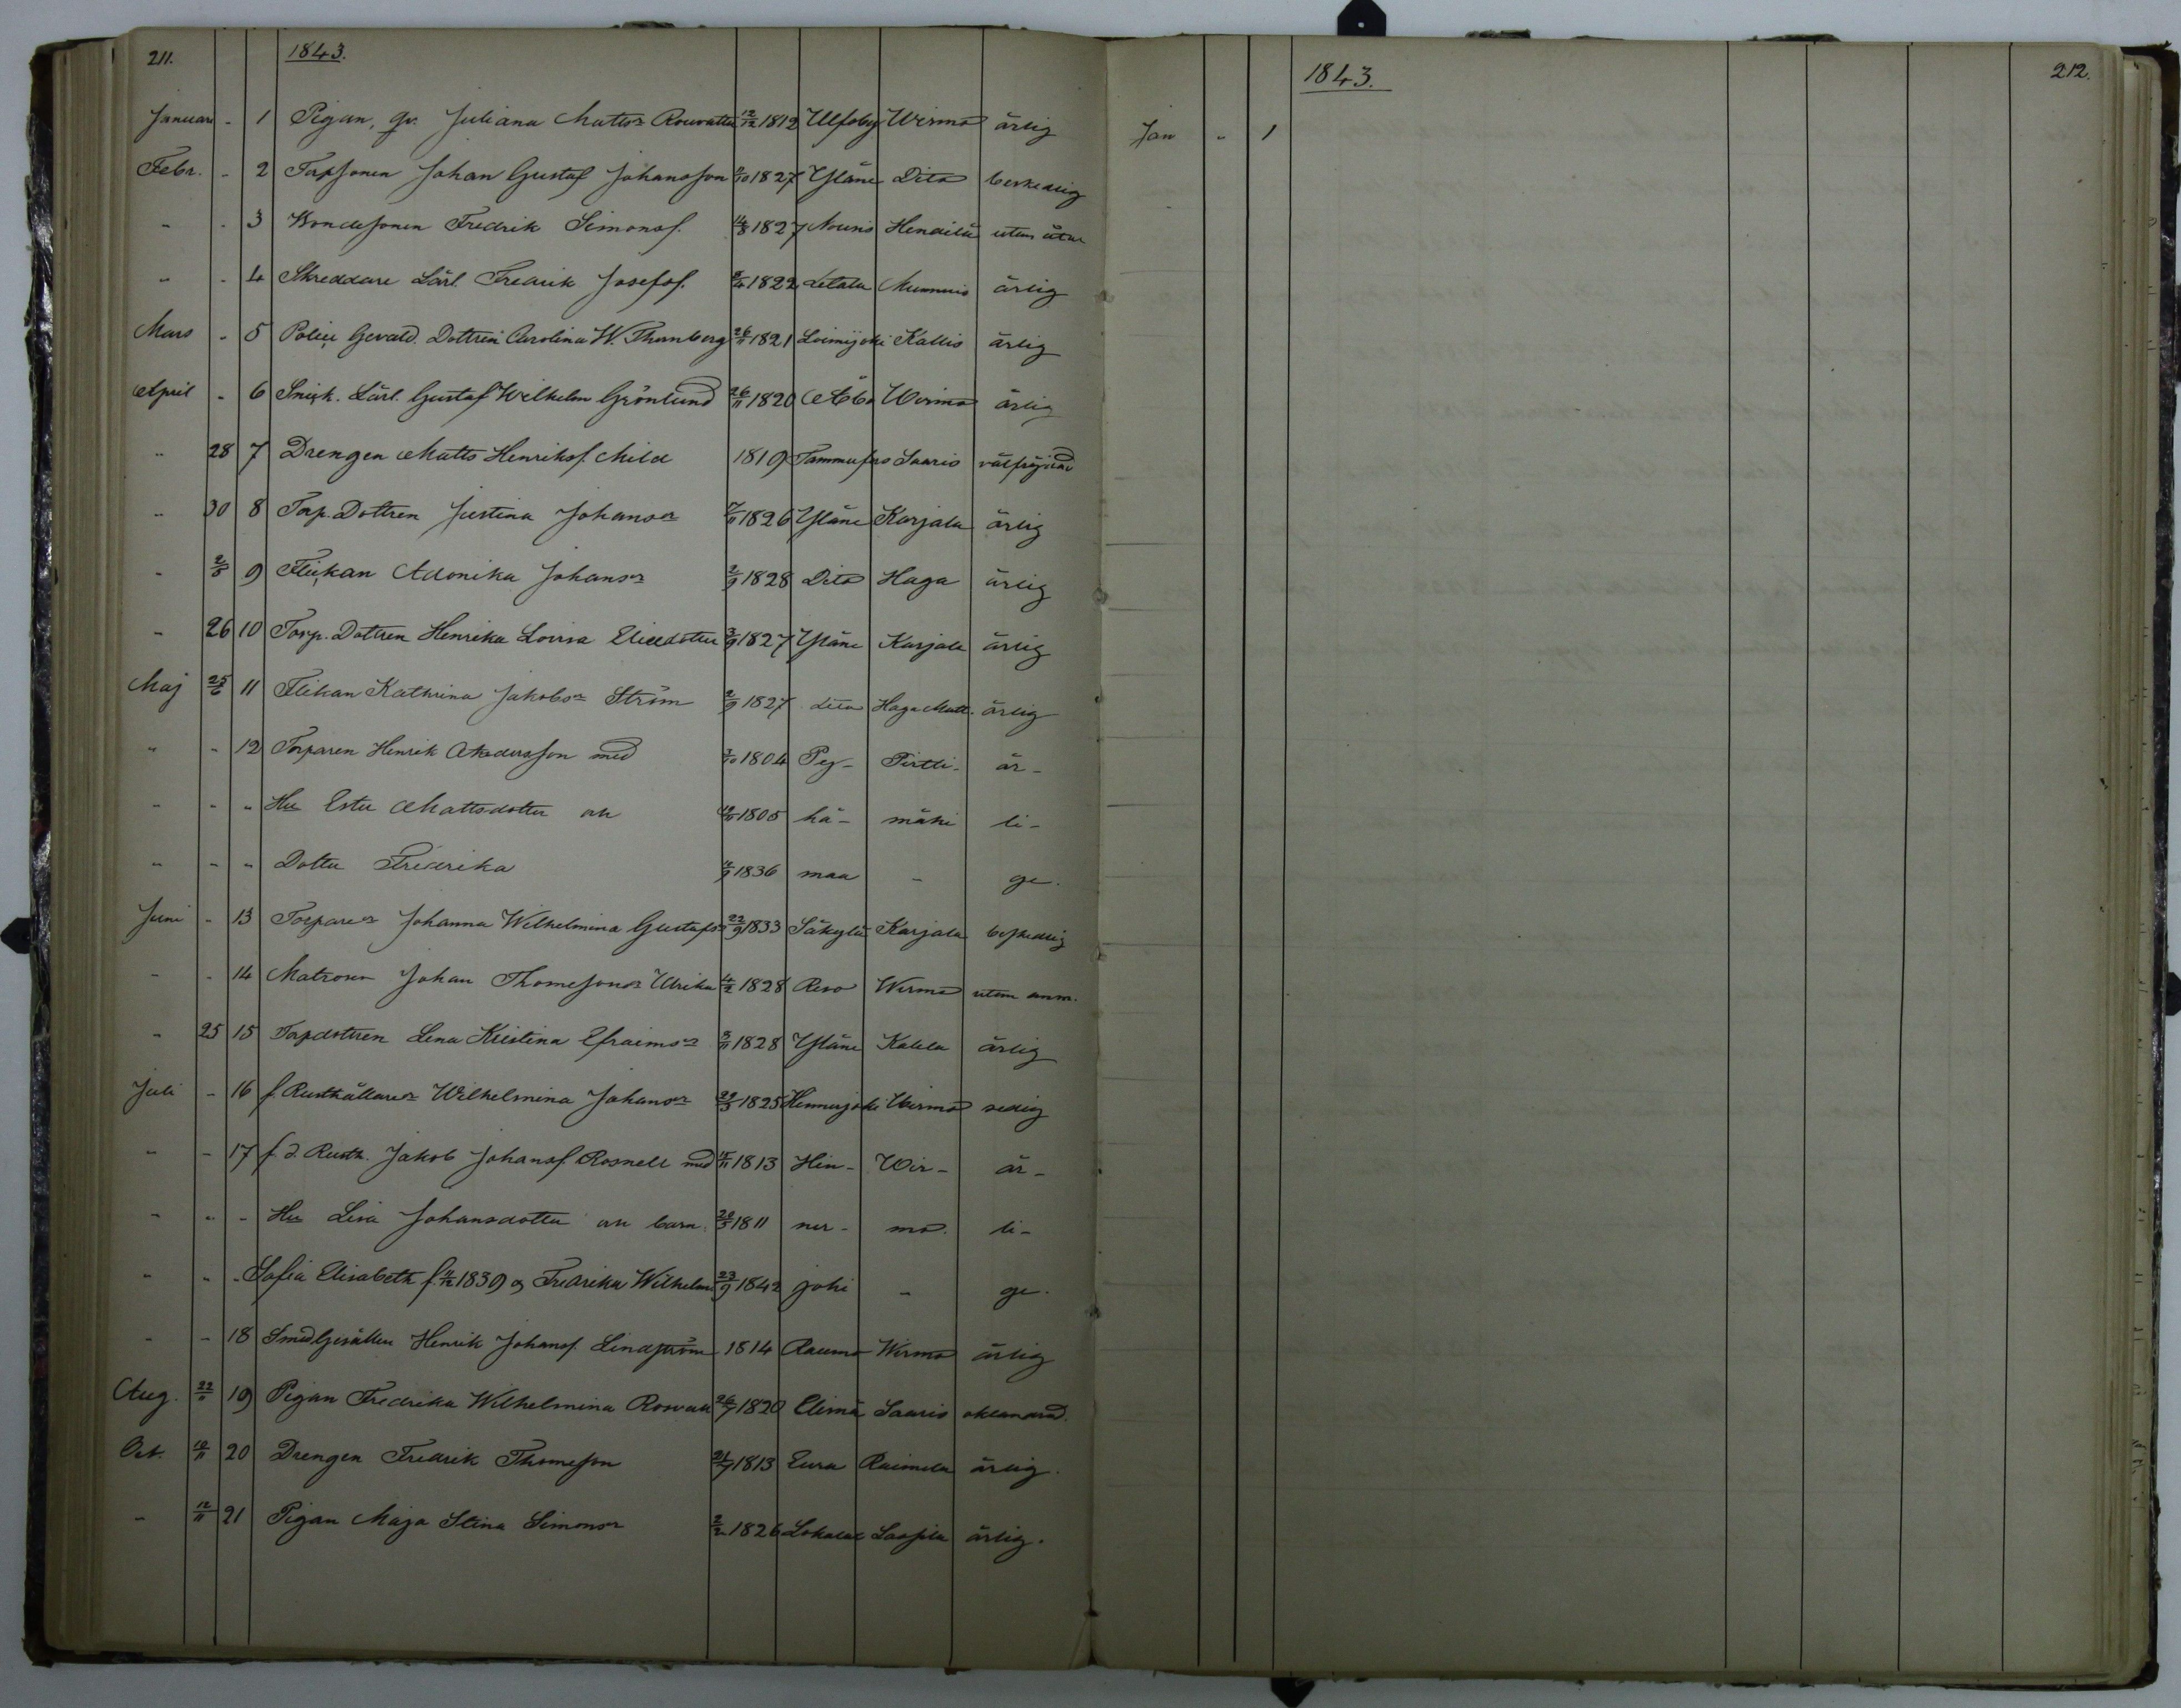 211. 1843.
Januari - 1 Pigan, qv. Juliana Mattsr 12/12 1812 Ulfsby Wirmo ärlig
Febr. - 2 Torpsonen Johan Gustaf Johansson 1827 Yläne Dito beskedlig
- - 3 Bondesonen Fredrik Simonsf. 14/8 1827 Nousis Hendilä utan
- - 4 Skreddare Lärl. Fredrik Josefsf. 1822 Letala ärlig
Mars - 5 Police Gevald. Dottren Carolina W. Thunberg 26/11 1821 Loimijoki Kallis ärlig
April - 6 Snick. Lärl. Gustaf Wilhelm Grönlund 26/11 1820 Åbo Wirmo ärlig
" 28 7 Drengen Matts Henriksf. Mild 1819 Tammufors Saaris välfrejdad
" 30 8 Torp. Dottren Justina Johansr 7/11 1826 Yläne Karjala ärlig
- 2/5 9 Flickan Adonika Johansr 2/9 1828 Dito Haga ärlig
- 26 10 Torp. Dottren Henrika Lovisa 3/9 1827 Yläne Karjala ärlig
Maj 25/6 11 Flikan Kathrina Jakobsr Ström 2/9 1827 dito Haga Matt. ärlig
" - 12 Torparen Henrik Andersson med 1804 Pey- Pirtti- är-
- - " Hu Ester Mattsdotter och 1805 hä- mäki li-
" - " Dotter Fredrika 1836 maa - ge.
Juni - 13 Torparer Johanna Wilhelmina Gustafsr 22/9 1833 Säkylä Karjala beskedlig
- - 14 Matrosen Johan Thomessonsr Ulrika 1828 Reso Wirmo utan anm.
- 25 15 Torpdottren Lena Kristina Efraimsr 3/11 1828 Yläne Kalela ärlig
Juli - 16 f. Rusthållarer Wilhelmina Johansr 29/5 1825 Hinnerjoki Wirmo sedig
- - 17 f. d. Rusth. Jakob Johansf. Rosnell med 15/11 1813 Hin- Wir- är-
- - - Hu Lisa Johansdotter och barn. 20/5 1811 ner- mo. li-
" " - Sofia Elisabeth f. 11/12 1839 & Fredrika Wilhelm 23/9 1842 joki - ge.
- - 18 Smedgesällen Henrik Johansf. Lindström 1814 Raumo Wirmo ärlig
Aug. 19 Pigan Fredrika Wilhelmina 26/7 1820 Elimä Saaris oklandrad.
Oct. 20 Drengen Fredrik Thomesson 21/7 1813 Eura Raimela ärlig.
- 12/11 21 Pigan Maja Stina Simonsr 2/2 1826 Lokalat ärlig.
1843. 212.
Jan " 1